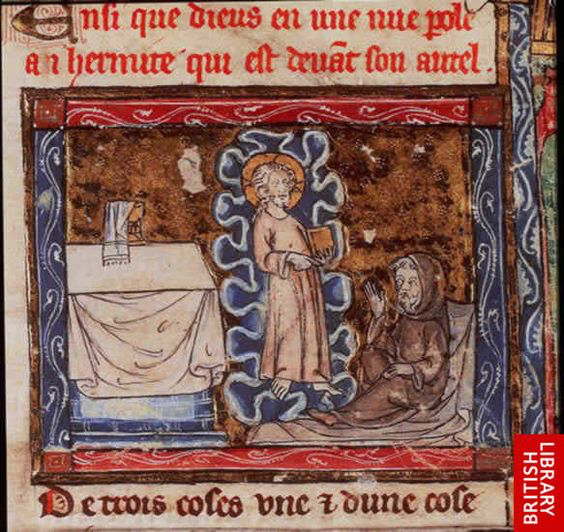 Ensi que dieus en une nue pole
an hermite qui est devāt son autel.
De trois coses vne ⁊ dune cose
BRITISH
LIBRARY